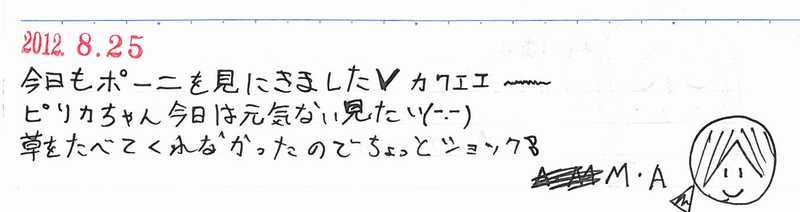 2012. 8.25
今日もポーニを見にきました♥カワエエ〰
ピリカちゃん今日は元気ない見たい(-.-)
草をたべてくれなかったのでちょっとショック
M・A